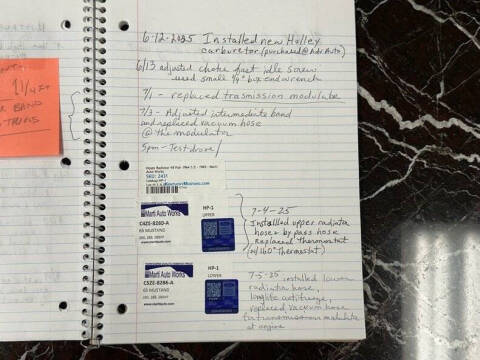 1 1/4 FT
BAND
6-12-2025 Installed new Holley
carburetor (purchased @ Adv Auto)
6/13 adjusted choke fast idle screw
used small 1/4" box end wrench
7/1 - replaced trasmission modulator
7/3 - Adjusted intermediate band
and replaced vacuum hose
@ the modulator
5pm - Test drove/
Auto Works
SKU: 2431
HP-1
UPPER
Marti Auto Works
C4ZE-8260-A
65 MUSTANG
HP-1
LOWER
Marti Auto Works
C5ZE-8286-A
65 MUSTANG
7-4-25
Installed upper radiator
hose & by pass hose
Replaced thermostat
(w/160° thermostat)
7-5-25 installed lower
radiator hose,
antifreeze,
replaced vacuum hose
for transmission modulator
at engine